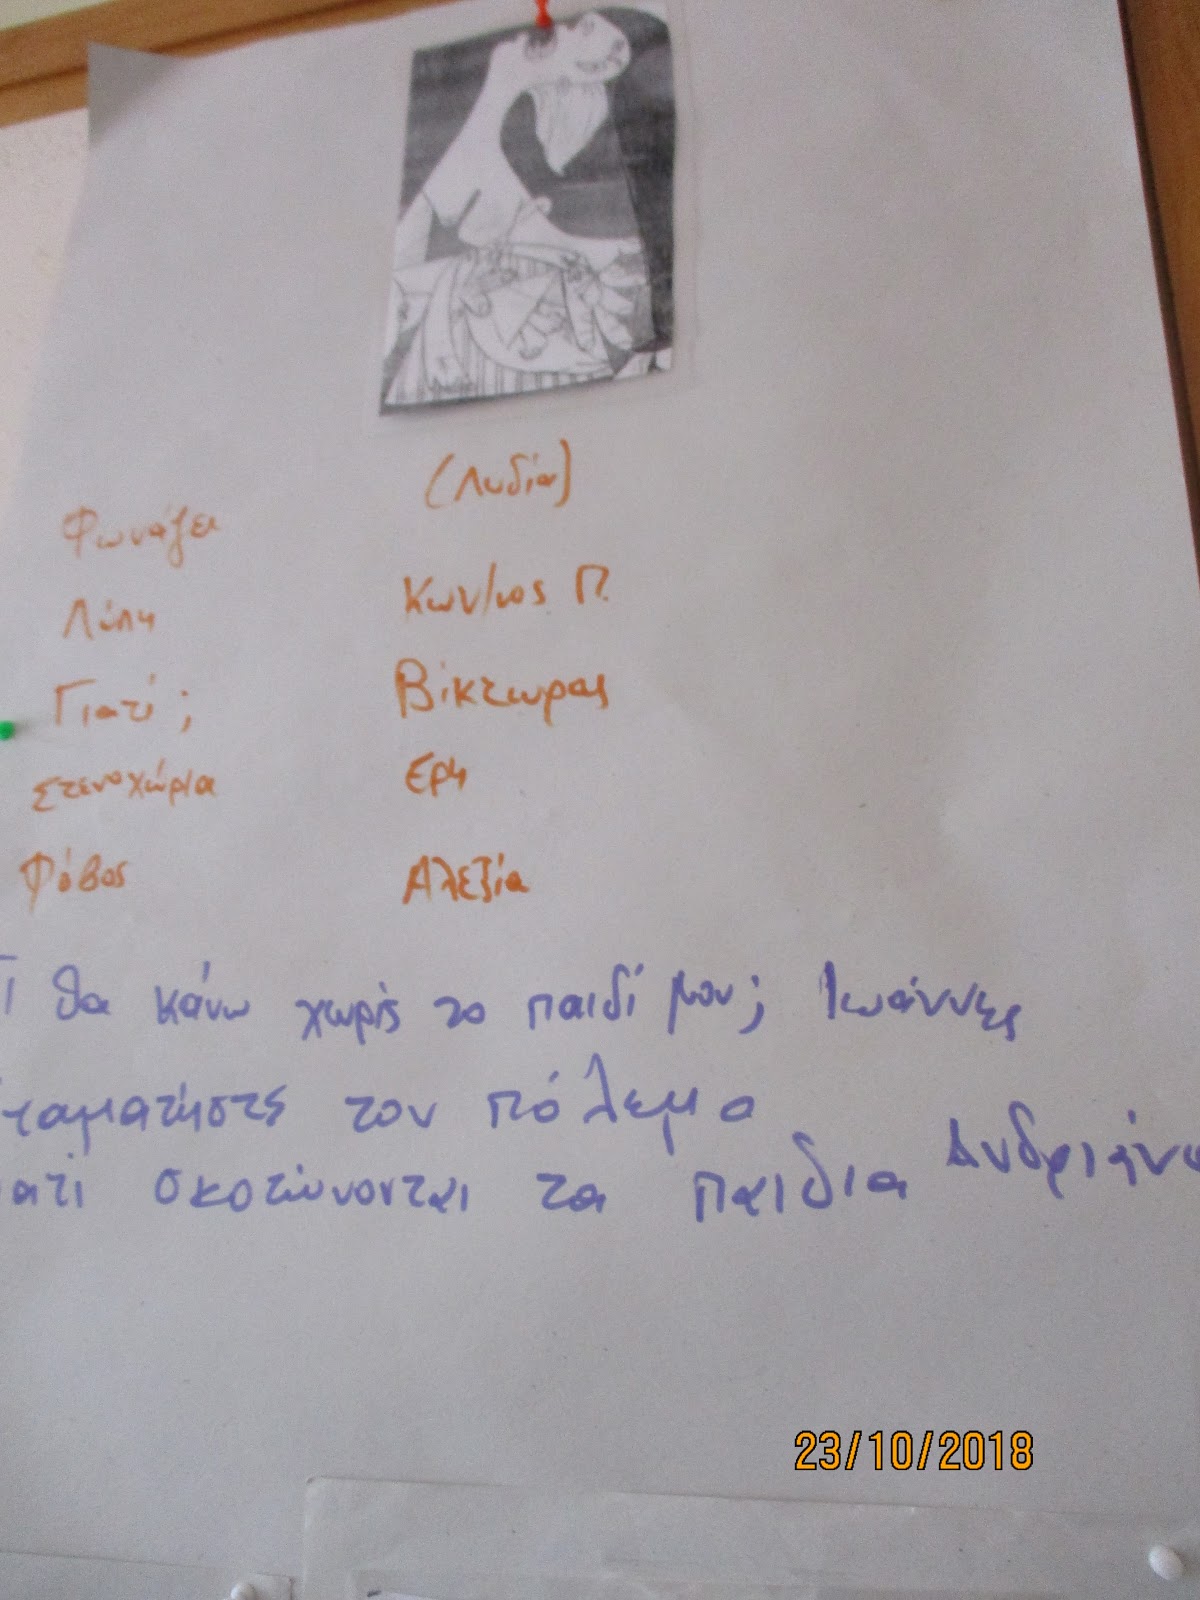 (Λυδία)
Φωνάζει
Λύπη Κων/νος Π.
Γιατί; Βίκτωρας
Στενοχώρια Έρη
Φόβος Αλεξία
Τι θα κάνω χωρίς το παιδί μου; Ιωάννης
ταματήστε τον πόλεμο
ατί σκοτώνονται τα παιδια Ανδριάν
23/10/2018